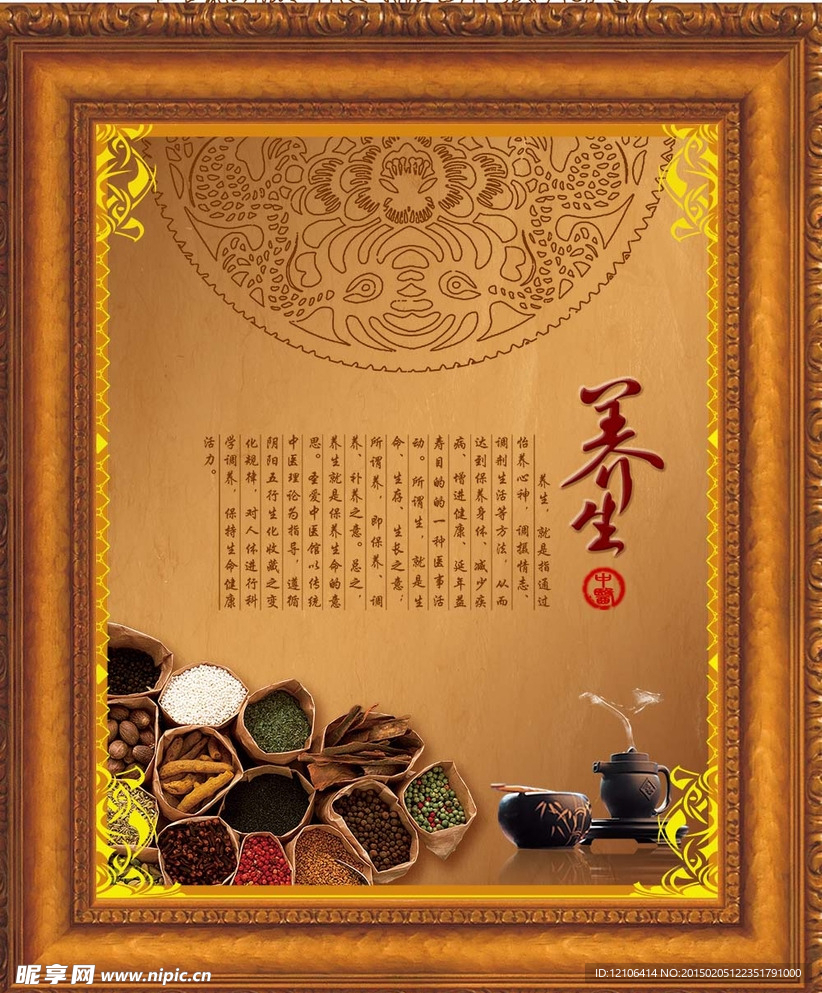 养生
中醫
养生，就是指通过
怡养心神，调摄情志、
调剂生活等方法，从而
达到保养身体、减少疾
病、增进健康、延年益
寿目的的一种医事活
动。所谓生，就是生
命、生存、生长之意；
所谓养，即保养、调
养、补养之意。总之，
养生就是保养生命的意
思。圣爱中医馆以传统
中医理论为指导，遵循
阴阳五行生化收藏之变
化规律，对人体进行科
学调养，保持生命健康
活力。
昵享网 www.nipic.cn
ID:12106414 NO:20150205122351791000